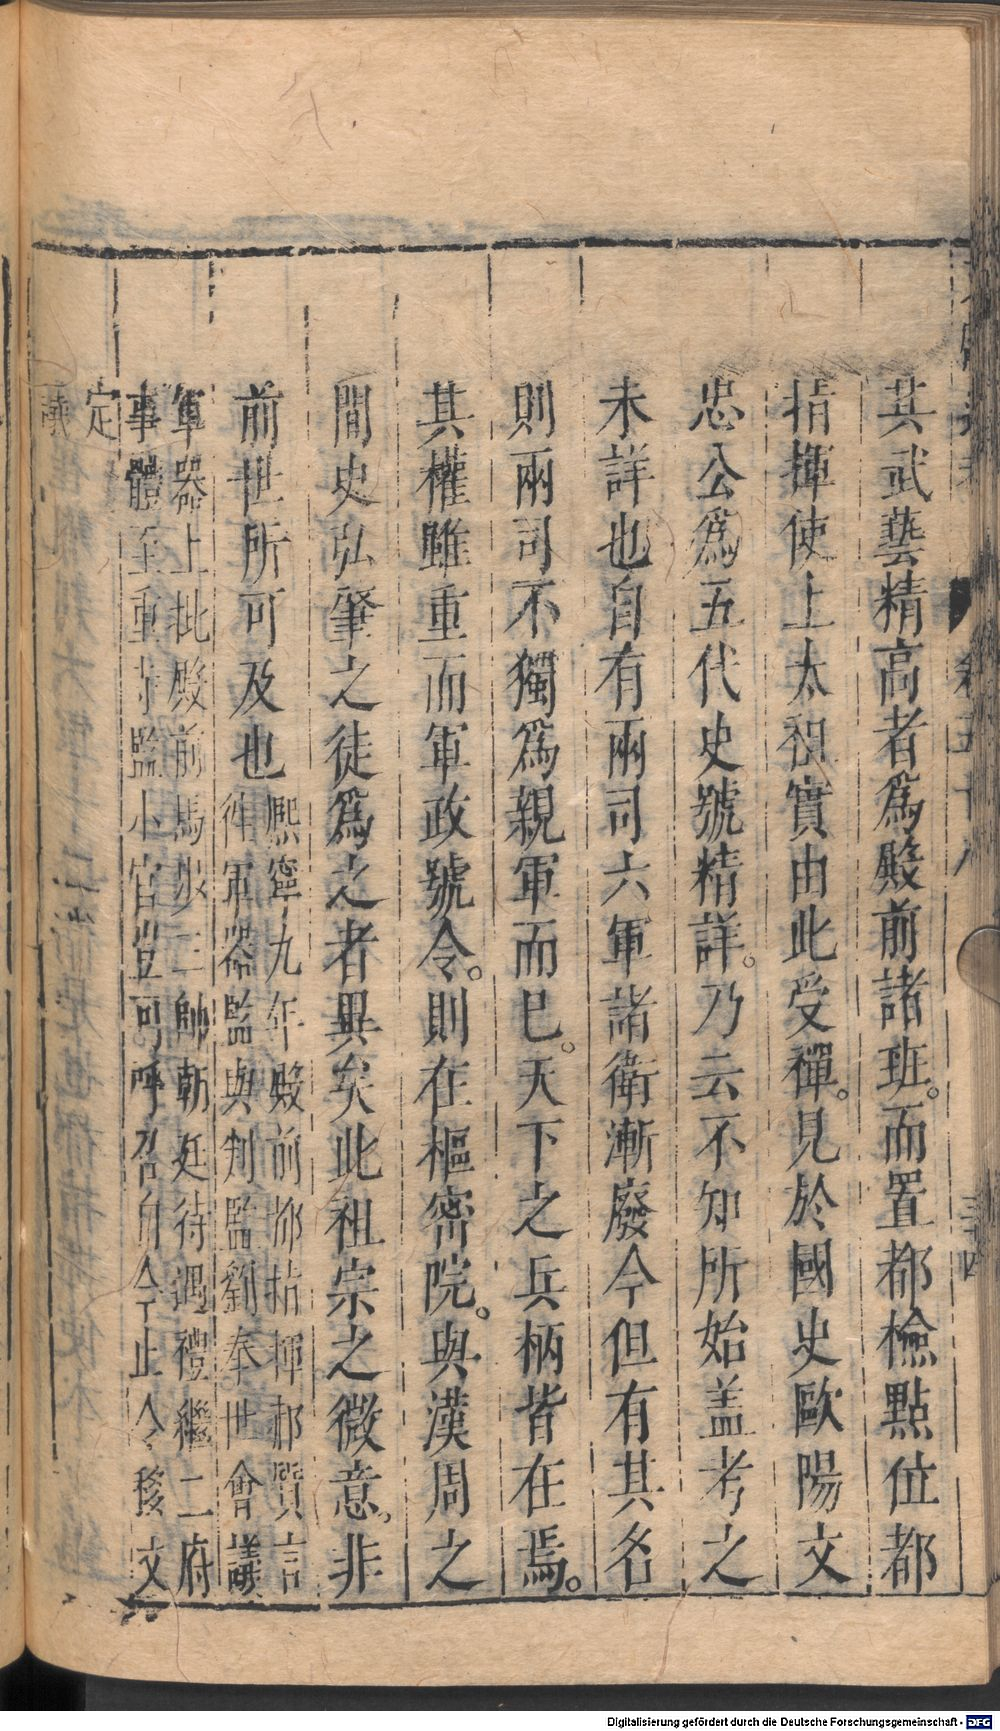 其武藝精高者爲殿前諸班。而置都檢點位都
指揮使上太祖實由此受禪。見於國史歐陽文
忠公爲五代史號精詳。乃云不知所始盖考之
未詳也自有兩司六軍諸衛漸廢今但有其名
則兩司不獨爲親軍而巳。天下之兵柄皆在焉。
其權雖重而軍政號令。則在樞密院。與漢周之
間史弘肇之徒爲之者異矣此祖宗之微意。非
前世所可及也
熙寧九年殿前都指揮郝質言
軍器監與判監劉奉世會議
軍器上批殿前馬步三帥朝廷待遇禮繼二府
事體至重寺監小官豈可呼召自今止令移文
定
議
Digitalisierung gefördert durch die Deutsche Forschungsgemeinschaft - DFG